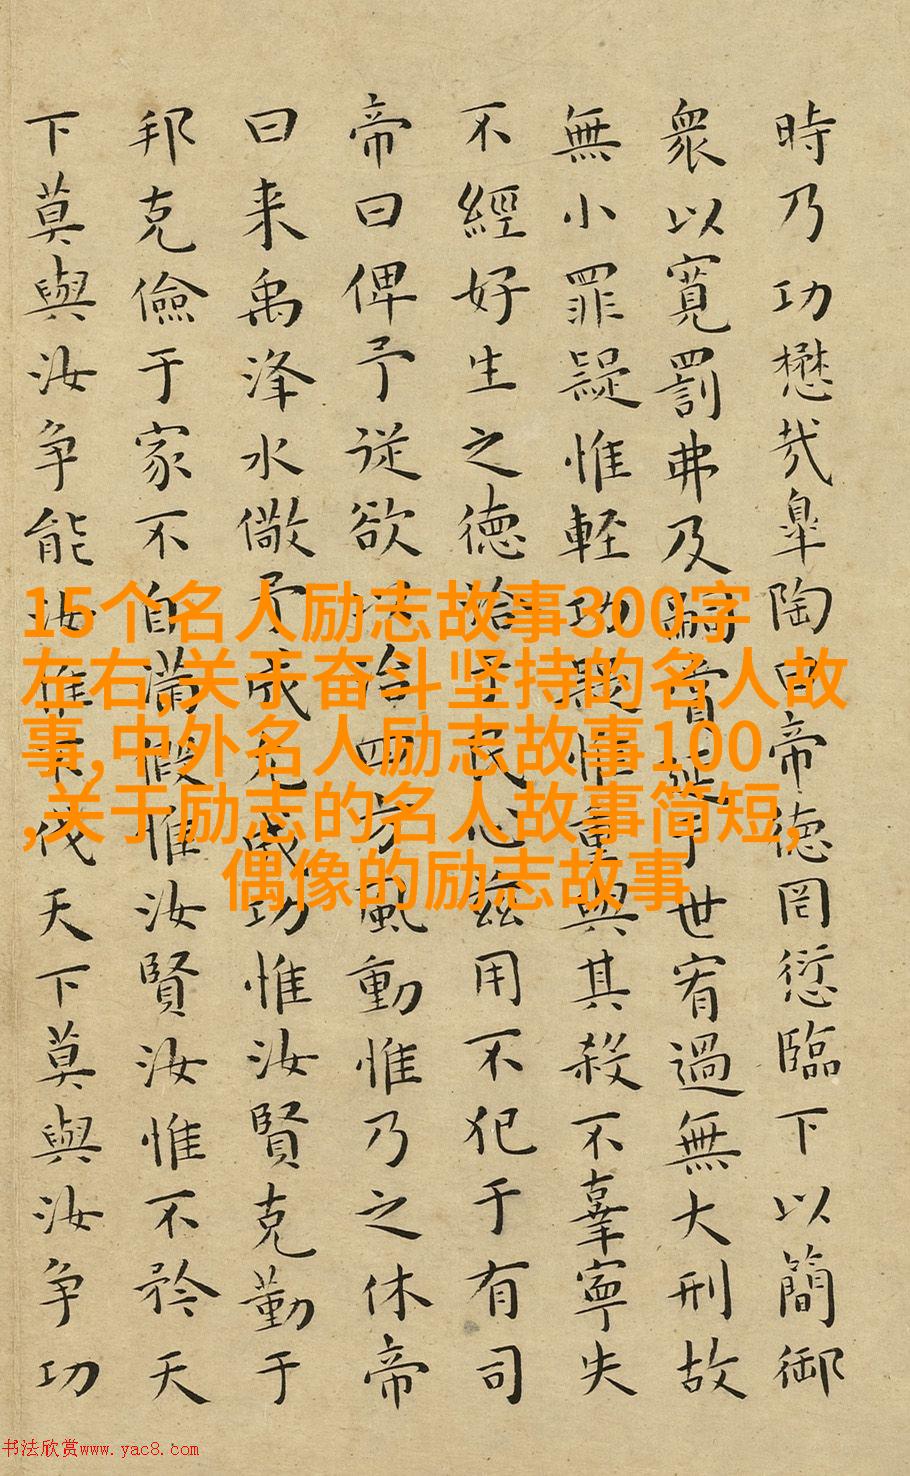 時乃功懋哉臯陶曰帝德罔愆臨下以簡御
衆以寬罰弗及嗣賞延于世宥過無大刑故
無小罪疑惟輕功疑惟重與其殺不辜寧失
不經好生之德洽于民心兹用不犯于有司
帝曰俾予從欲以治四方風動惟乃之休帝
曰来禹洚水儆予成允成功惟汝賢克勤于
邦克儉于家不自滿假惟汝賢汝惟不矜天
下莫與汝争能汝惟不伐天下莫與汝争功
15个名人励志故事300字
左右,关于奋斗坚持的名人故
事,中外名人励志故事100
,关于励志的名人故事简短,
偶像的励志故事
书法欣赏www.yac8.com